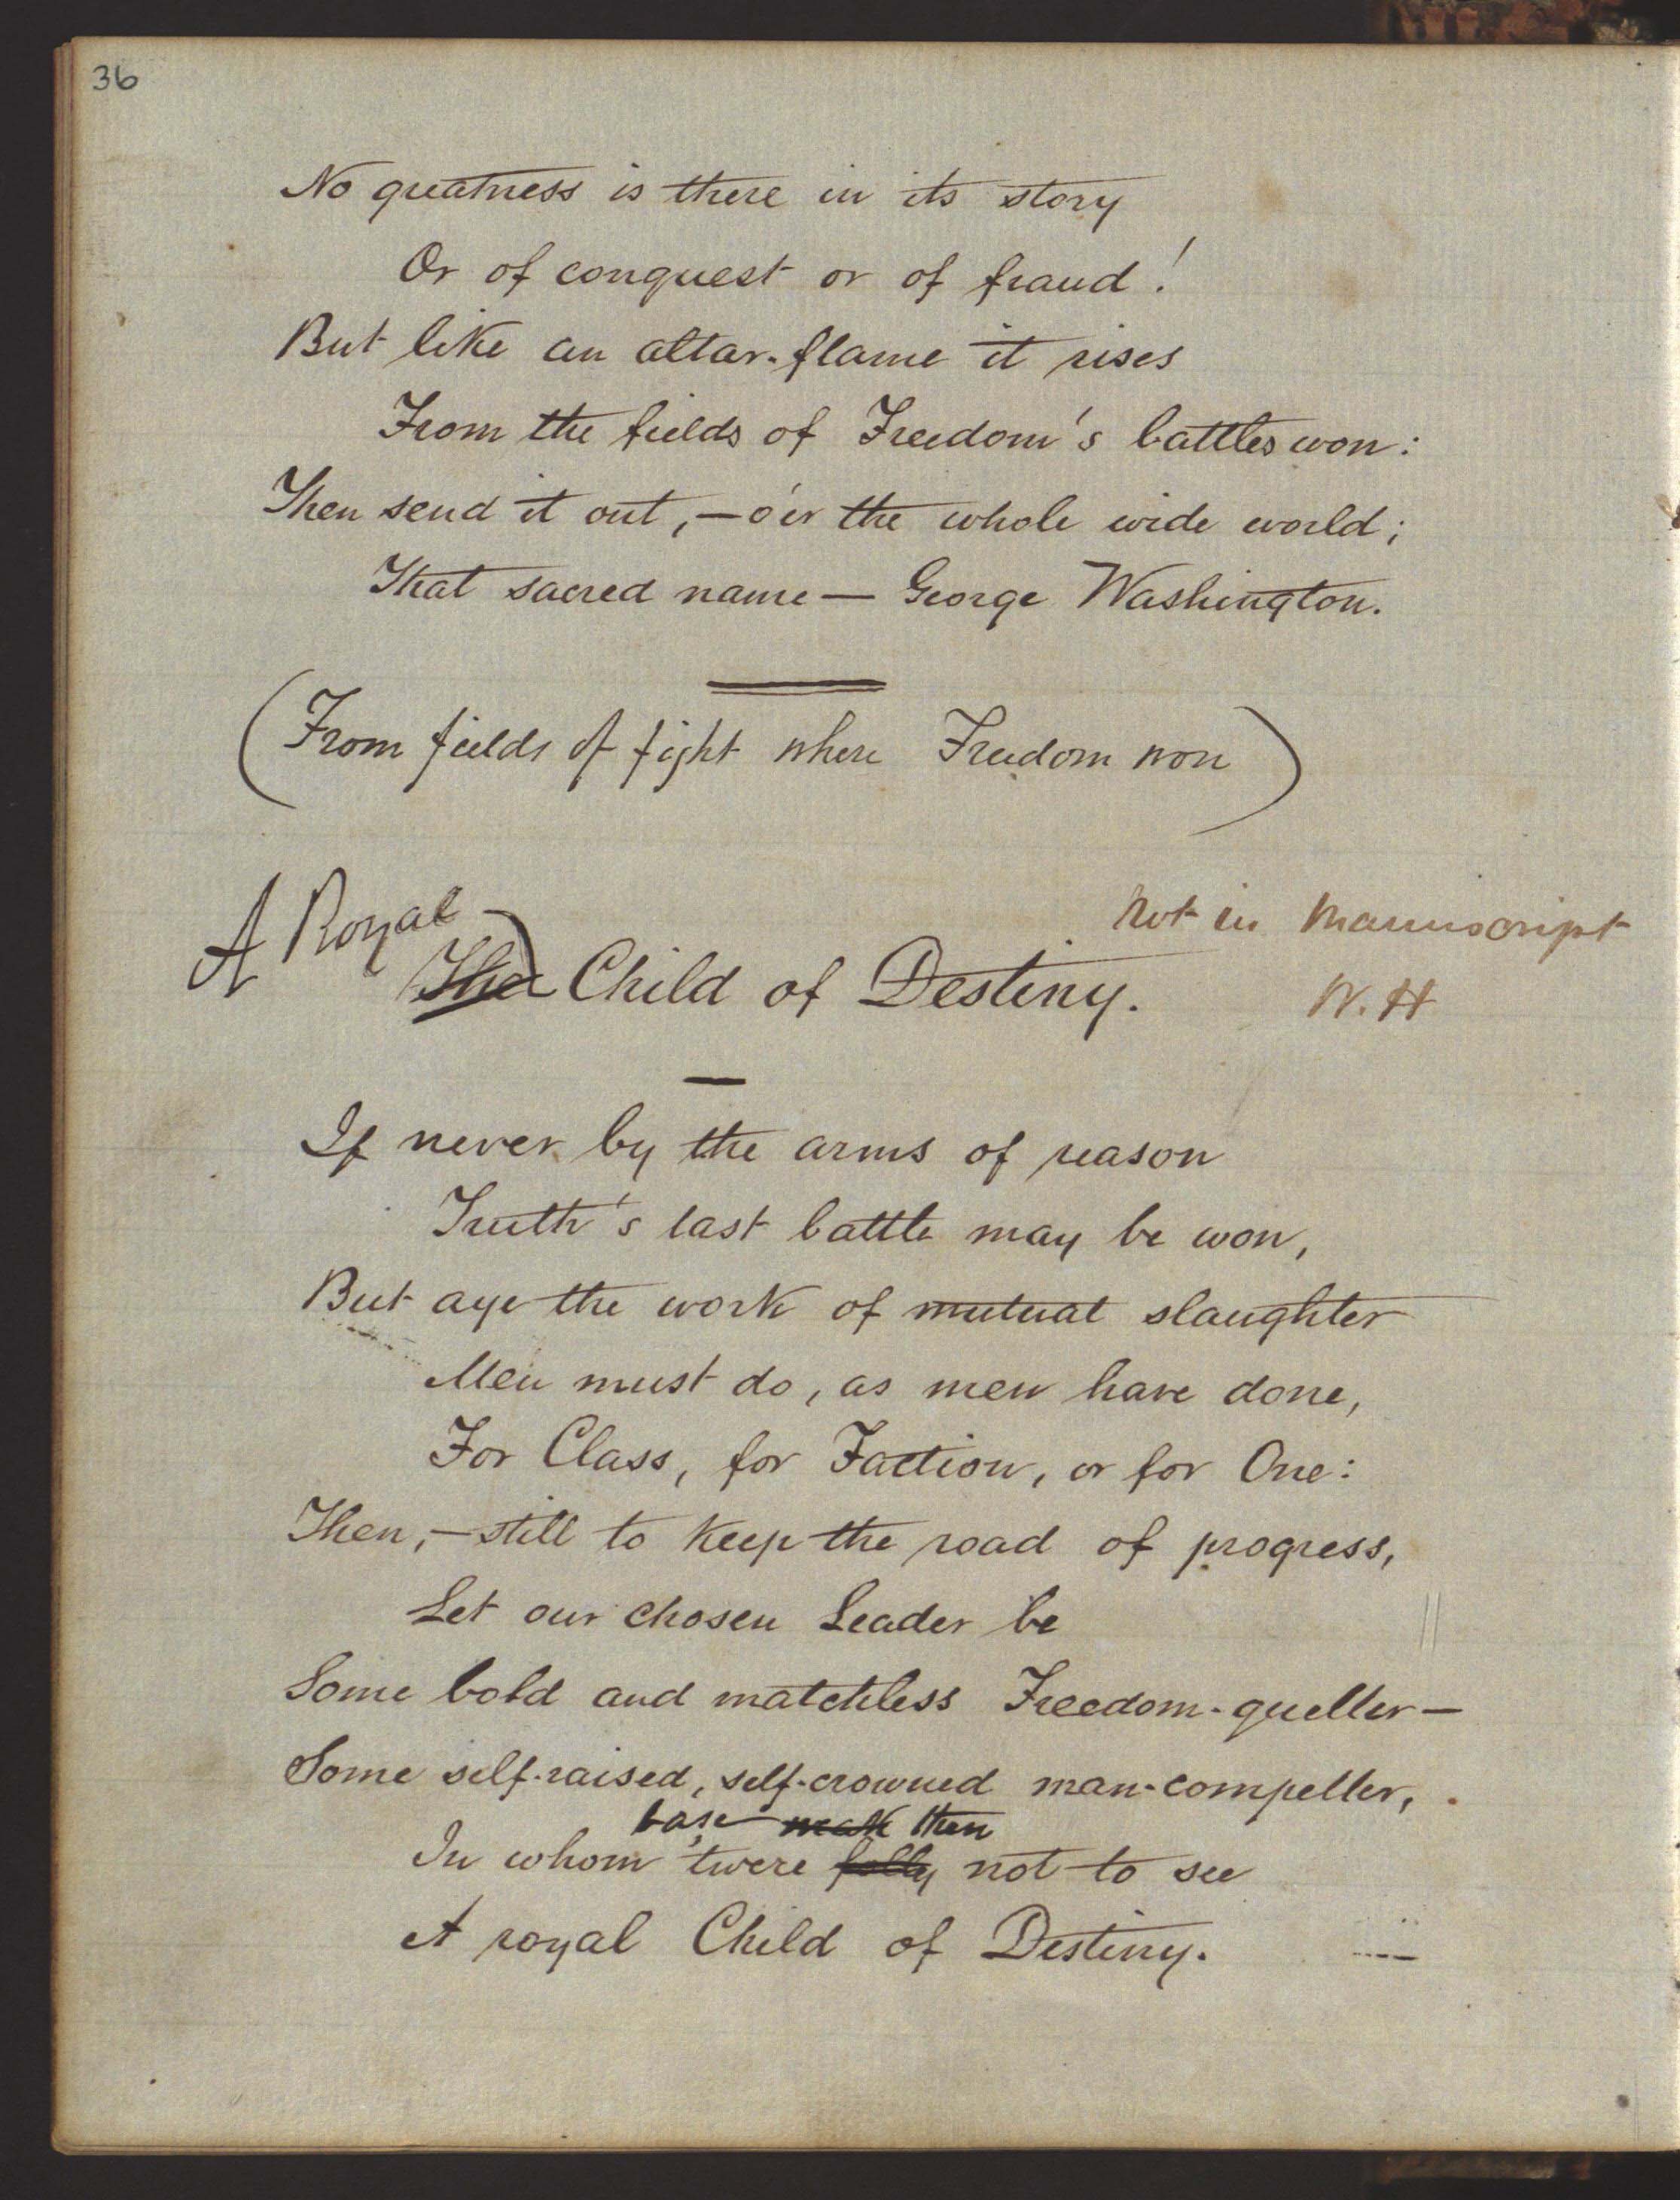 36
No greatness is there in its story
Or of conquest or of fraud!
But like an altar-flame it rises
From the fields of Freedom's battles won:
Then send it out, — o'er the whole wide world;
That sacred name — George Washington.
(From fields of fight where Freedom won)
A Royal
The Child of Destiny.
Not in Manuscript
W. H
If never by the arms of reason
Truth's last battle may be won,
But aye the work of mutual slaughter
Men must do, as men have done,
For Class, for Faction, or for One:
Then, — still to keep the road of progress,
Let our chosen Leader be
Some bold and matchless Freedom-queller —
Some self-raised, self-crowned man-compeller,
base weak then
In whom 'twere folly not to see
A royal Child of Destiny.